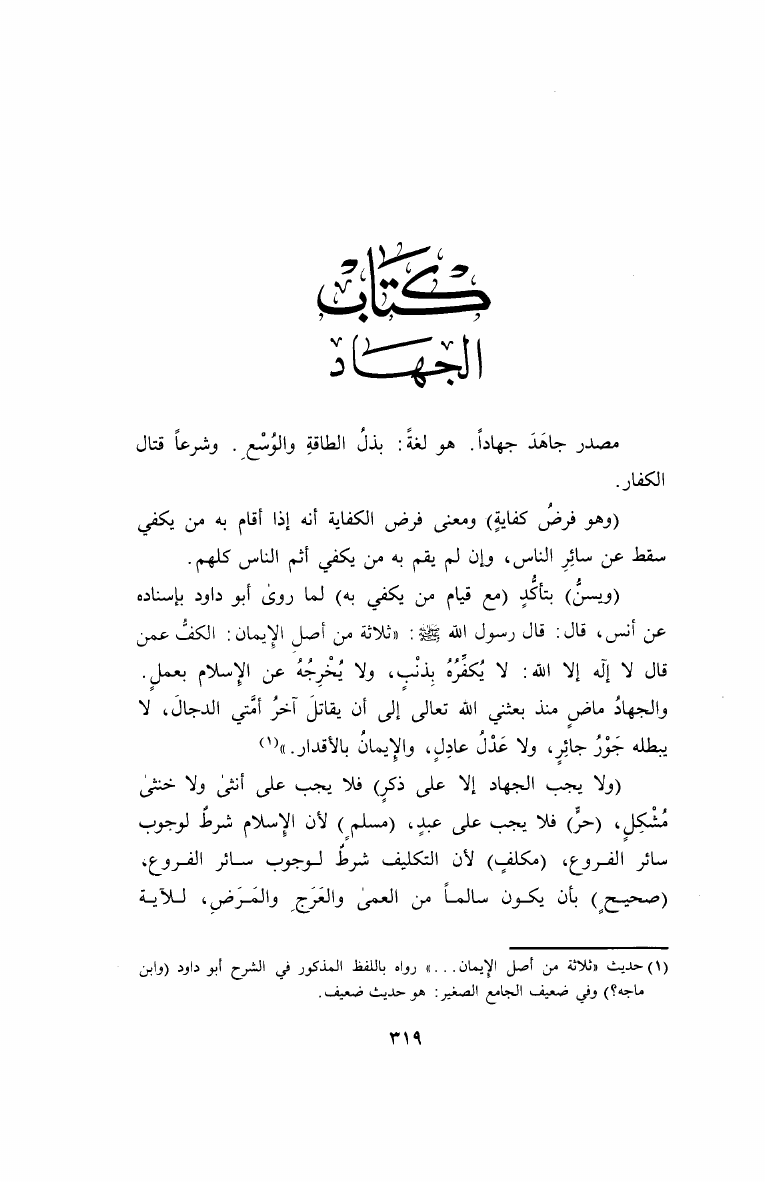 كتاب
الجهاد
مصدر جاهَدَ جهاداً. هو لغةً: بذلُ الطاقةِ والوُسْعِ. وشرعاً قتال
الكفار.
(وهو فرضُ كفايةٍ) ومعنى فرض الكفاية أنه إذا أقام به من يكفي
سقط عن سائِرِ الناس، وإن لم يقم به من يكفي أثم الناس كلهم.
(ويسنُّ) بتأكُّدٍ (مع قيام من يكفي به) لما روىٰ أبو داود بإسناده
عن أنس، قال: قال رسول الله ﷺ: «ثلاثة من أصل الإيمان: الكفُّ عمن
قال لا إلٰه إلا الله: لا يُكفِّرُهُ بِذنْبٍ، ولا يُخْرِجُهُ عن الإسلام بعملٍ.
والجهادُ ماضٍ منذ بعثني الله تعالى إلى أن يقاتلَ آخرُ أمَّتي الدجالَ، لا
يبطله جَوْرُ جائِرٍ، ولا عَدْلُ عادِلٍ، والإيمانُ بالأقدار.»(١)
(ولا يجب الجهاد إلا على ذكرٍ) فلا يجب على أنثىٰ ولا خنثىٰ
مُشْكِلٍ، (حرٍّ) فلا يجب على عبدٍ، (مسلمٍ) لأن الإسلام شرطٌ لوجوب
سائر الفروع، (مكلفٍ) لأن التكليف شرطٌ لوجوب سائر الفروع،
(صحيحٍ) بأن يكون سالماً من العمىٰ والعَرَجِ والمَرَضِ، للآية
(١) حديث «ثلاثة من أصل الإيمان...» رواه باللفظ المذكور في الشرح أبو داود (وابن
ماجه؟) وفي ضعيف الجامع الصغير: هو حديث ضعيف.
٣١٩